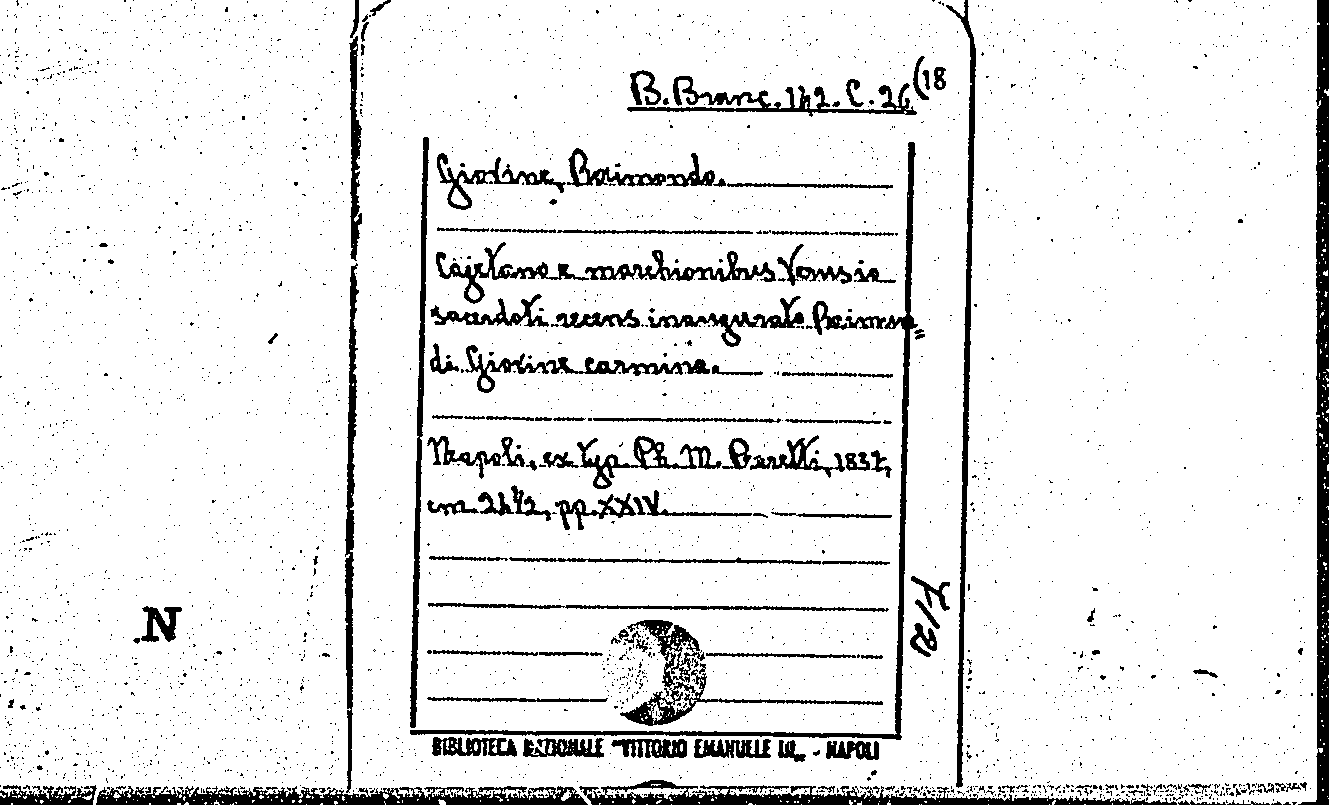 B. Branc. 142. C. 26(18
Giovine, Raimondo.
Cajetano e marchionibus Venusio
sacerdoti recens inaugurato Raimun„
di Giovine carmina.
Neapoli, ex typ. Ph. M. Baretti, 1837,
cm. 24½, pp. XXIV.
F/20
N
BIBLIOTECA NAZIONALE "VITTORIO EMANUELE III„ - NAPOLI